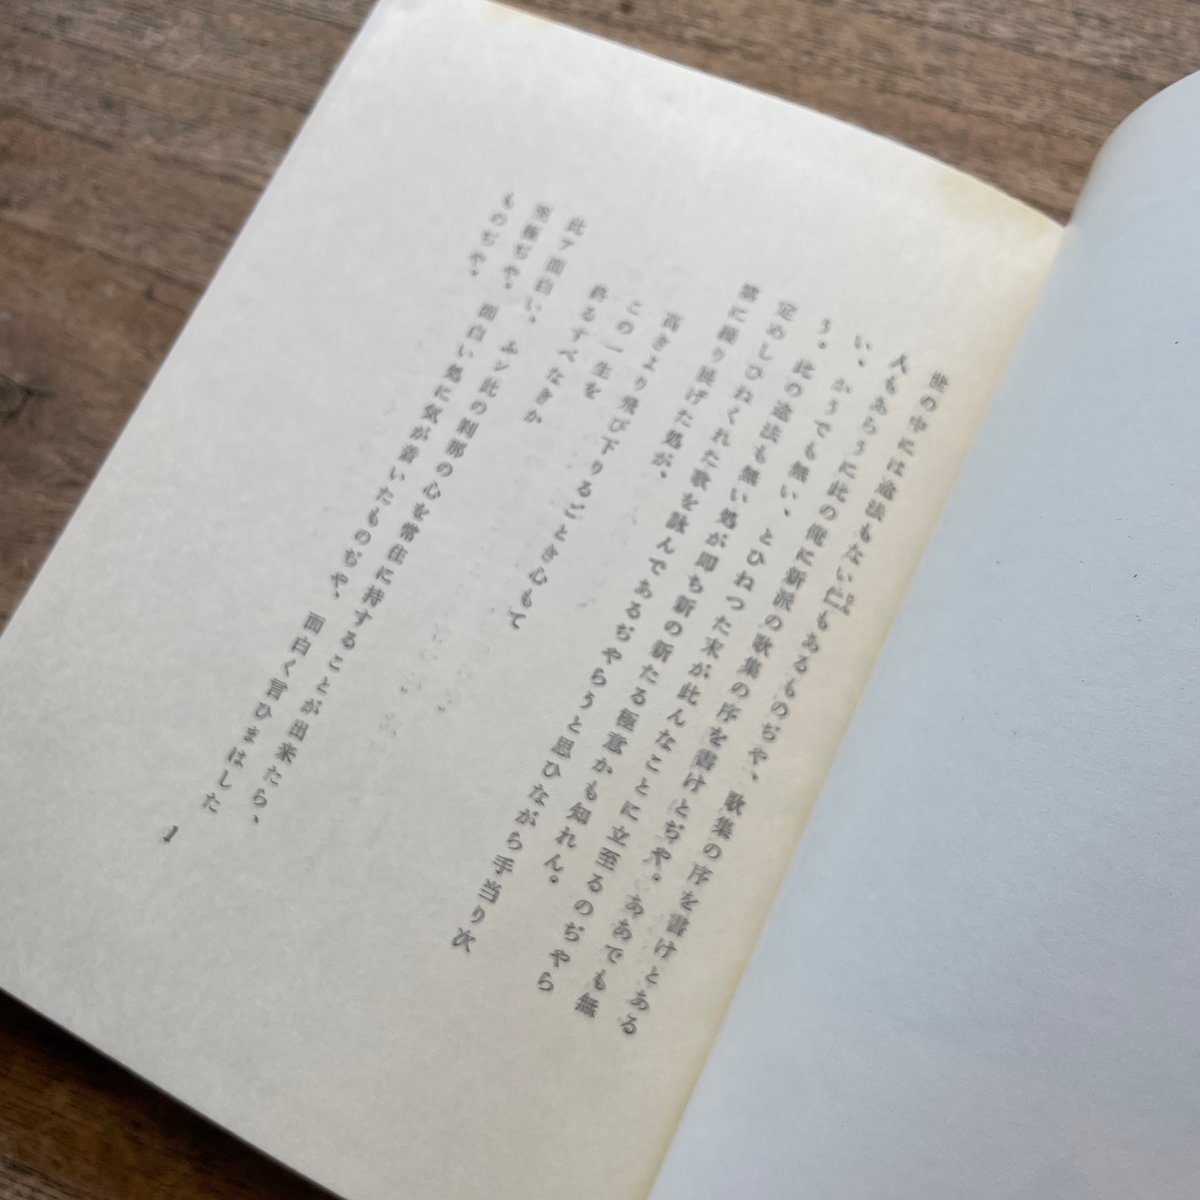 世の中には途法もない仁もあるものぢや、歌集の序を書けとある
人もあらうに此の俺に新派の歌集の序を書けとぢや。ああでも無
い、かうでも無い、とひねつた末が此んなことに立至るのぢやら
う。此の途法も無い処が即ち新の新たる極意かも知れん。
定めしひねくれた歌を詠んであるぢやらうと思ひながら手当り次
第に繰り展げた処が、
高きより飛び下りるごとき心もて
この一生を
終るすべなきか
此ア面白い、ふン此の刹那の心を常住に持することが出来たら、
至極ぢや。面白い処に気が着いたものぢや、面白く言ひまはした
ものぢや。
1